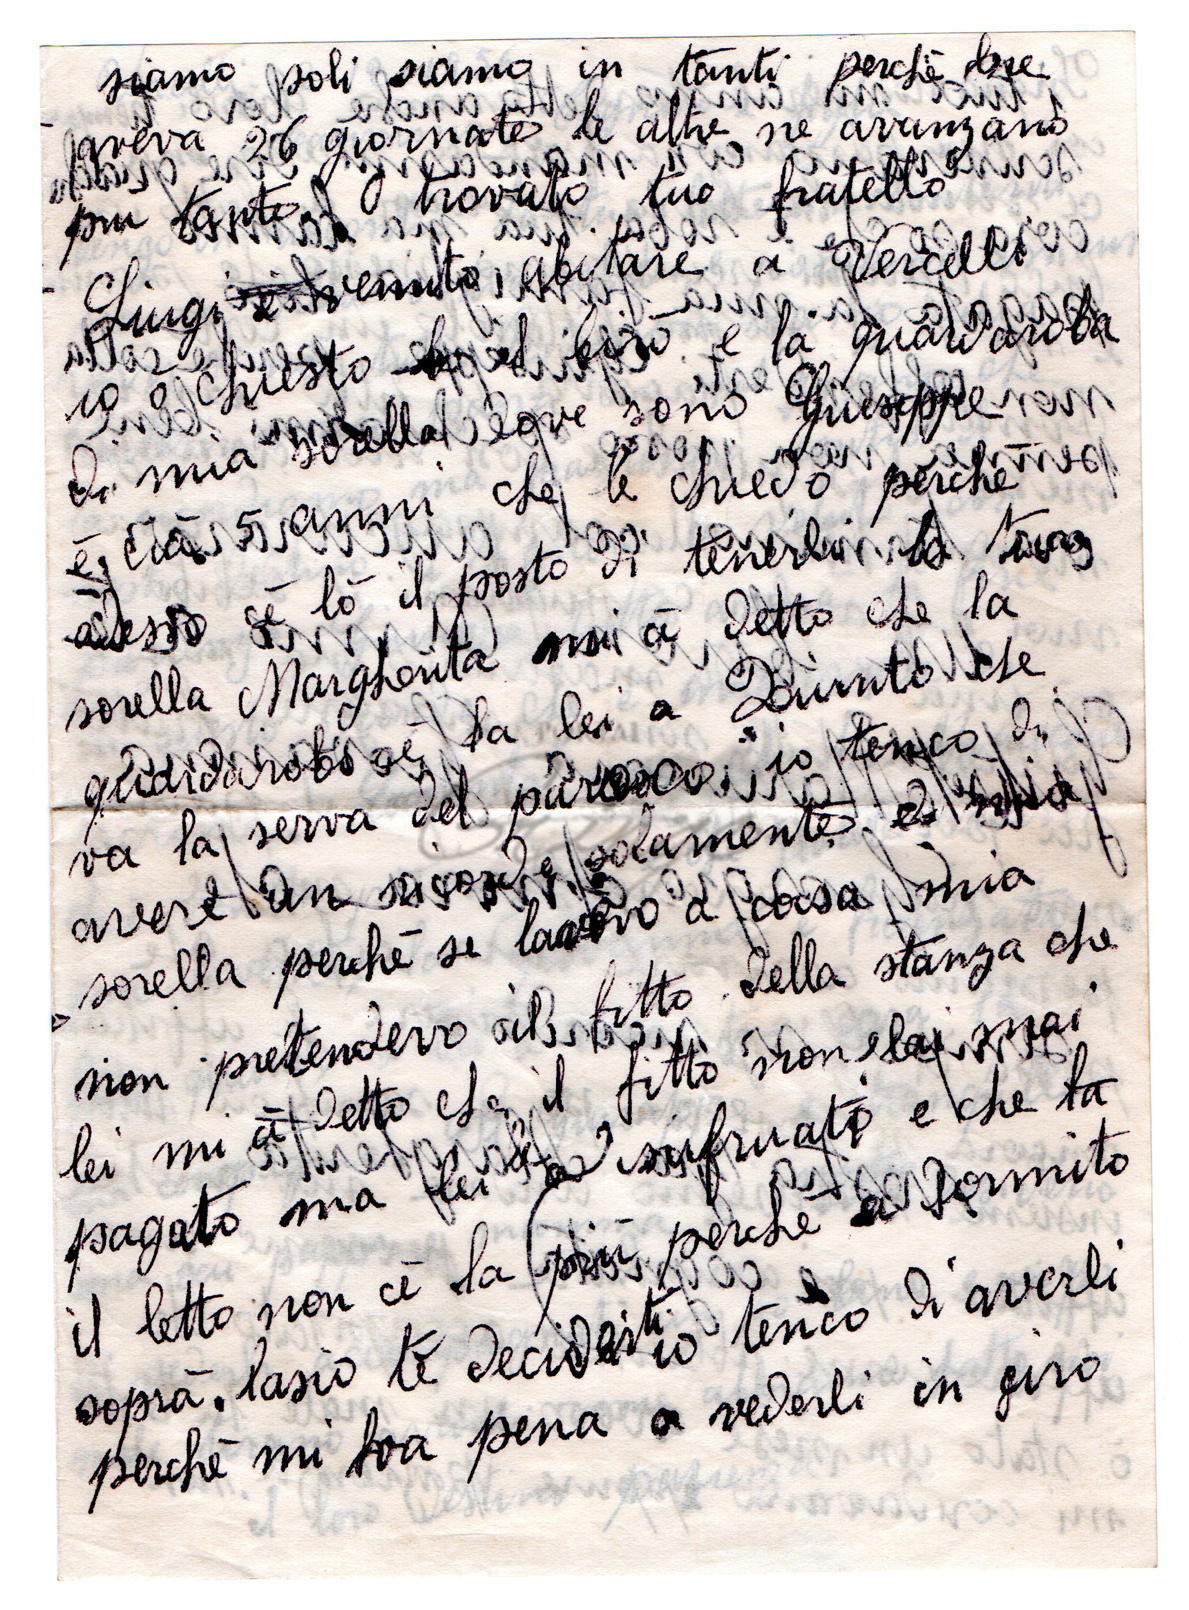 siamo soli siamo in tanti perchè due
aveva 26 giornate le altre ne avanzano
piu tanto. O trovato tuo fratello
Luigi è venuto abitare a Vercelli
io o chiesto el biro e la guardaroba
di mia sorella dove sono Giuseppe
è cia 5 anni che le chiedo perchè
adesso cè lò il posto di tenerli
sorella Margherita mi à detto che la
guardaroba cè la lei a Quinto che
va la serva del paroco. io tenco di
avere un ricordo solamente e mia
sorella perchè se lavoro a casa mia
non pretendevo il fitto della stanza che
lei mi à detto che il fitto non lai mai
pagato ma lei la sufruatà e che la
il letto non cè la più perchè a dormito
soprà. lasio tè decidesti io tenco di averli
perchè mi fva pena a vederli in giro